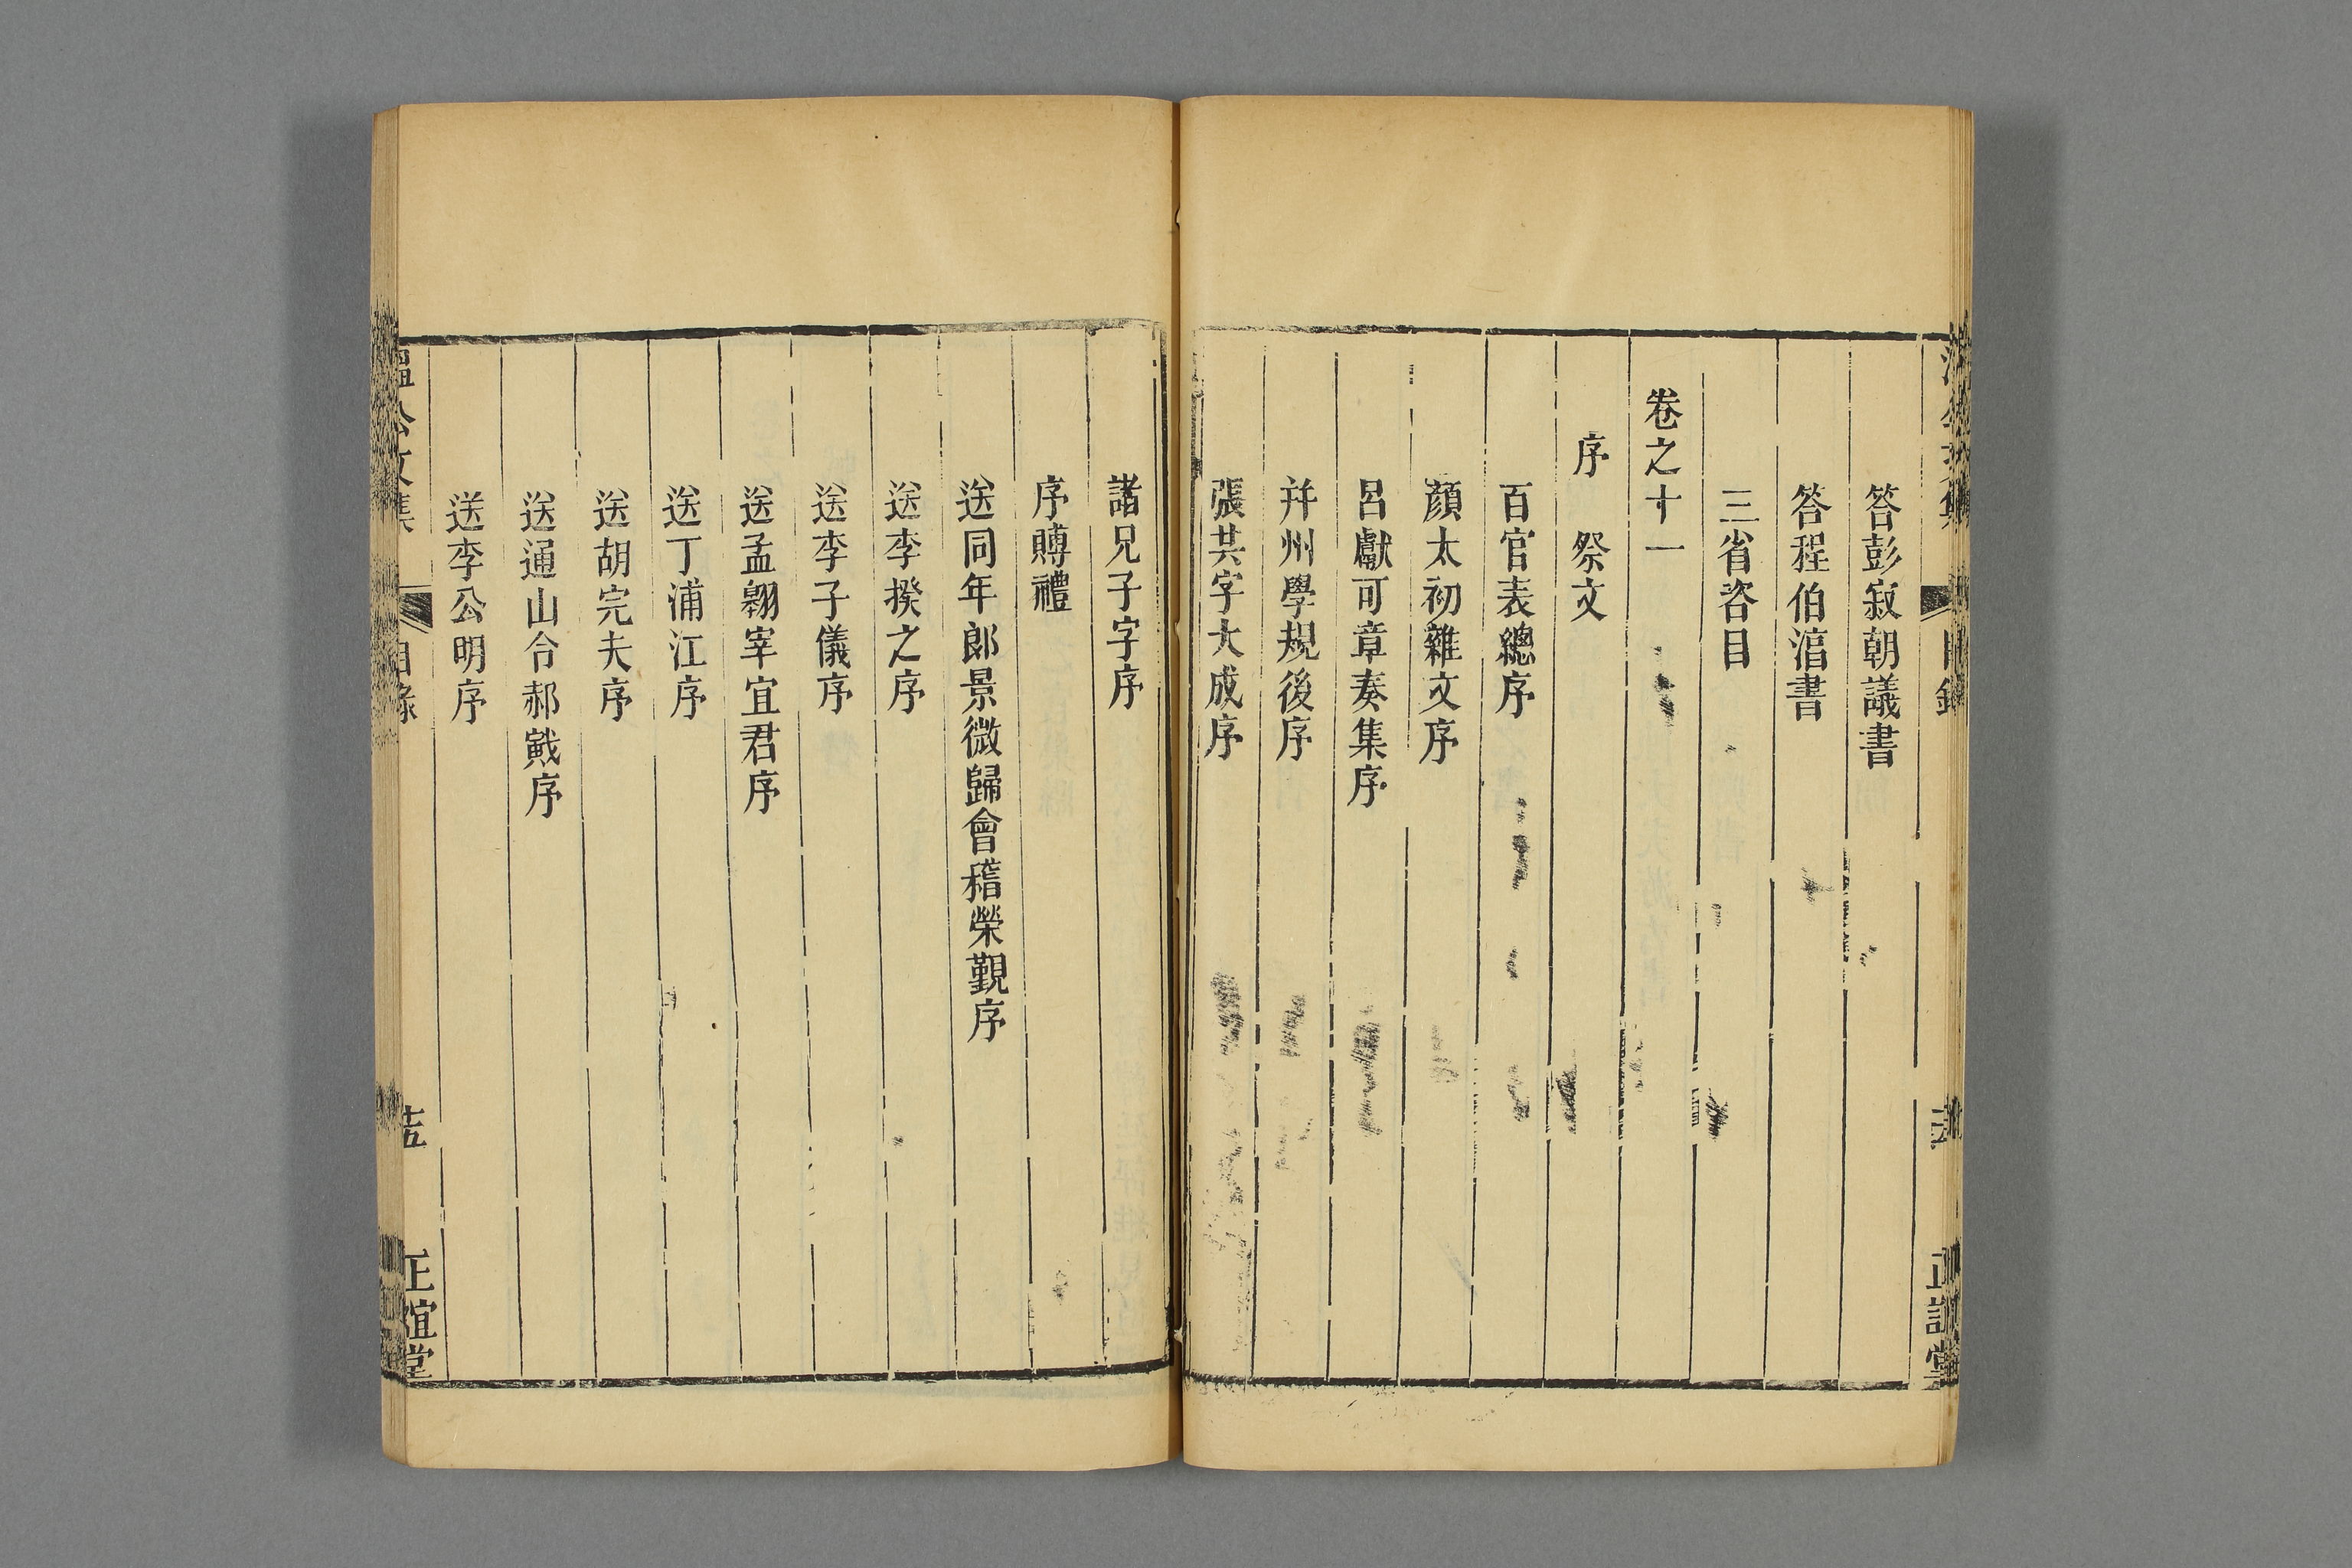 答彭寂朝議書
答程伯淳書
三省咨目
卷之十一
序　祭文
百官表總序
顏太初雜文序
呂獻可章奏集序
并州學規後序
張共字大成序
諸兄子字序
序賻禮
送同年郎景微歸會稽榮覲序
送李揆之序
送李子儀序
送孟翱宰宜君序
送丁浦江序
送胡完夫序
送通山令郝戭序
送李公明序
溫公文集
目錄
正誼堂